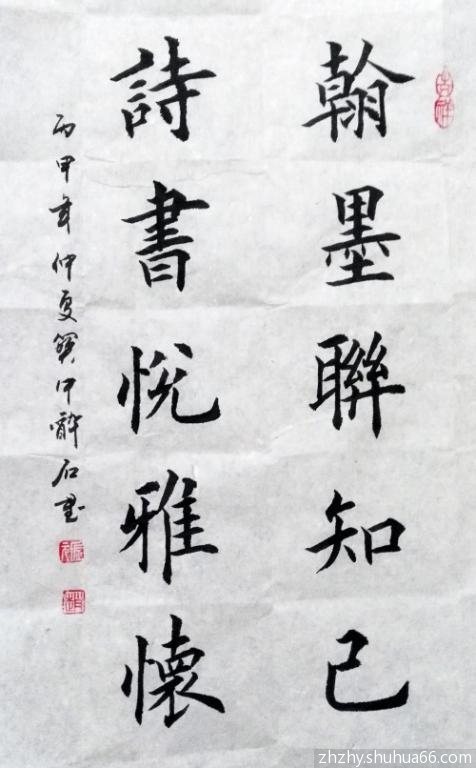 吉祥
翰墨聯知己
詩書悦雅懷
丙申年仲夏冀中醉石書
zhzhy.shuhua66.com